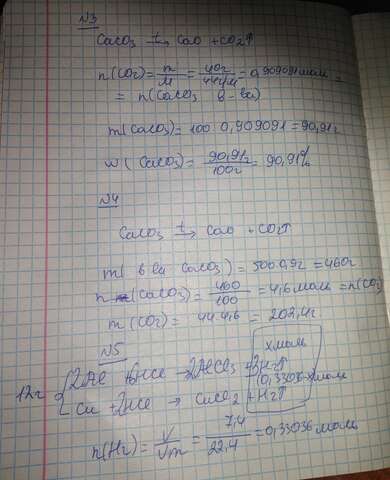 №3
CaCO₃ t→ CaO + CO₂↑
n(CO₂) = m/M = 40г/44г/м = 0,909091 моль =
= n(CaCO₃ в-ва)
m(CaCO₃) = 100·0,909091 = 90,91г
w(CaCO₃) = 90,91г/100г = 90,91%
№4
CaCO₃ t→ CaO + CO₂↑
m(в-ва CaCO₃) = 500·0,92 = 460г
n(CaCO₃) = 460/100 = 4,6 моль = n(CO₂)
m(CO₂) = 44·4,6 = 202,4г
№5
x моль
12г { 2Al + 6HCl → 2AlCl₃ + 3H₂↑
(0,33036-x) моль
Cu + 2HCl → CuCl₂ + H₂↑
n(H₂) = V/Vm = 7,4/22,4 = 0,33036 моль